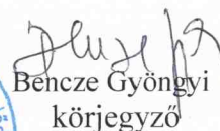 Bencze Gyöngyi
körjegyző